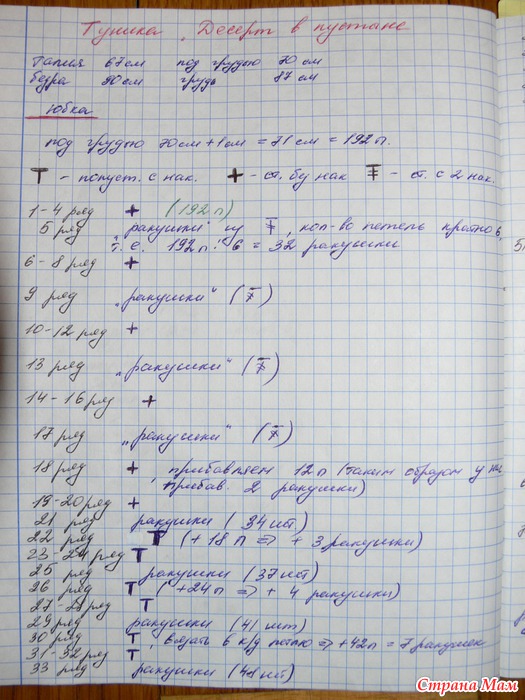 Туника „Десерт в пустыне
талия 67см под грудью 70 см
бедра 90см грудь 87 см
юбка
под грудью 70см+1см = 71см = 192п.
Т - полуст. с нак. + - ст. бу нак Ŧ - ст. с 2 нак.
1-4 ряд + (192п)
5 ряд „ракушки" из Ŧ, кол-во петель кратно 6,
т. е. 192п : 6 = 32 ракушки
6-8 ряд +
9 ряд „ракушки" (Ŧ)
10-12 ряд +
13 ряд „ракушки" (Ŧ)
14-16 ряд +
17 ряд „ракушки" (Ŧ)
18 ряд +, прибавляем 12п (таким образом у
прибав. 2 ракушки)
19-20 ряд +
21 ряд ракушки (34шт)
22 ряд Т (+18п => + 3 ракушки)
23-24 ряд Т
25 ряд ракушки (37шт)
26 ряд Т (+24п => + 4 ракушки)
27-28 ряд Т
29 ряд ракушки (41 шт)
30 ряд Т, в к/д петлю => +42п = 7 ракушек
31-32 ряд Т
33 ряд ракушки (48шт)
Страна Мам